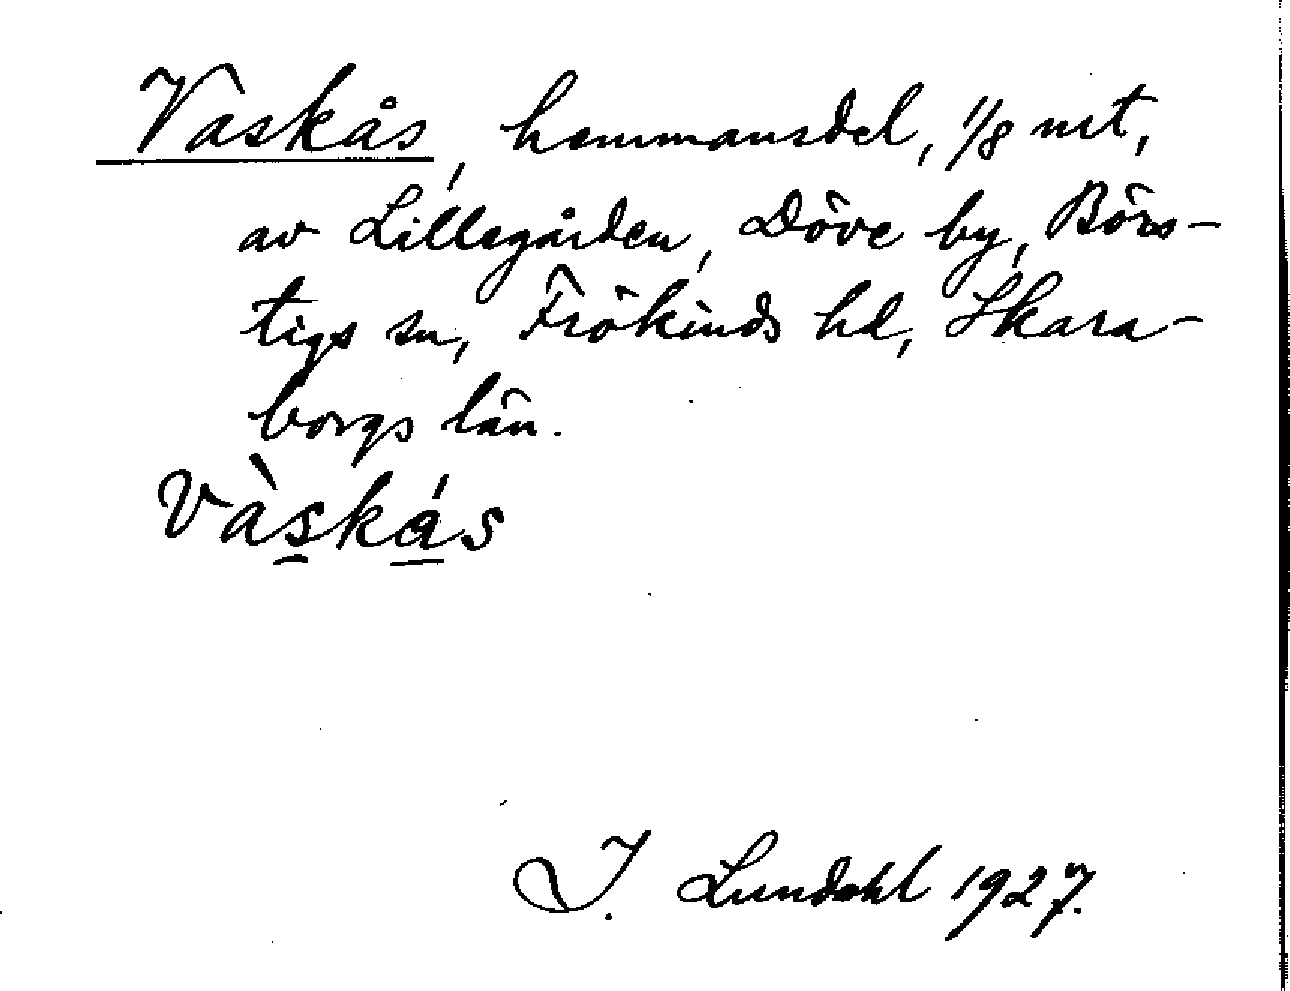 Vaskås, hemmansdel, 1/8 mt,
av Lillegården, Döve by, Börs-
tigs sn, Frökinds hd, Skara-
borgs län.
Vàskás
I. Lundahl 1927.